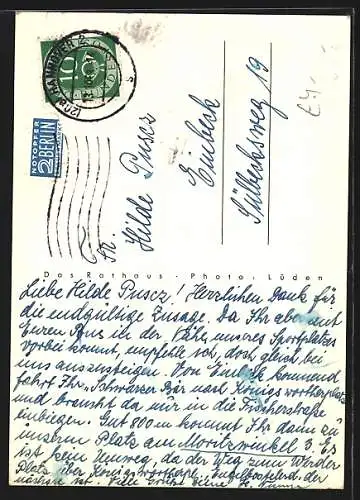 HANNOVER
10
NOTOPFER
2 BERLIN
STEUERMARKE
Frl.
Hilde Puscz
Einbeck
Sülbecksweg 19
£4-
Das Rathaus · Photo: Lüden
Liebe Hilde Puscz! Herzlichen Dank für
die endgültige Zusage. Da Ihr aber mit
Eurem Bus in der Nähe unseres Sportplatzes
vorbei kommt, empfehle ich, doch gleich bei
uns auszusteigen. Von Einbeck kommend
fahrt Ihr „Schwarzer Bär nach Königswortherplatz
und braucht da nur in die Fischerstraße
einbiegen. Gut 800 m kommt Ihr dann zu
unseren Platz am Moritzwinkel 3. Es
ist kein Umweg, da der Weg zum Werder
Platz über Königsworthpl.
nächste ist. Viele